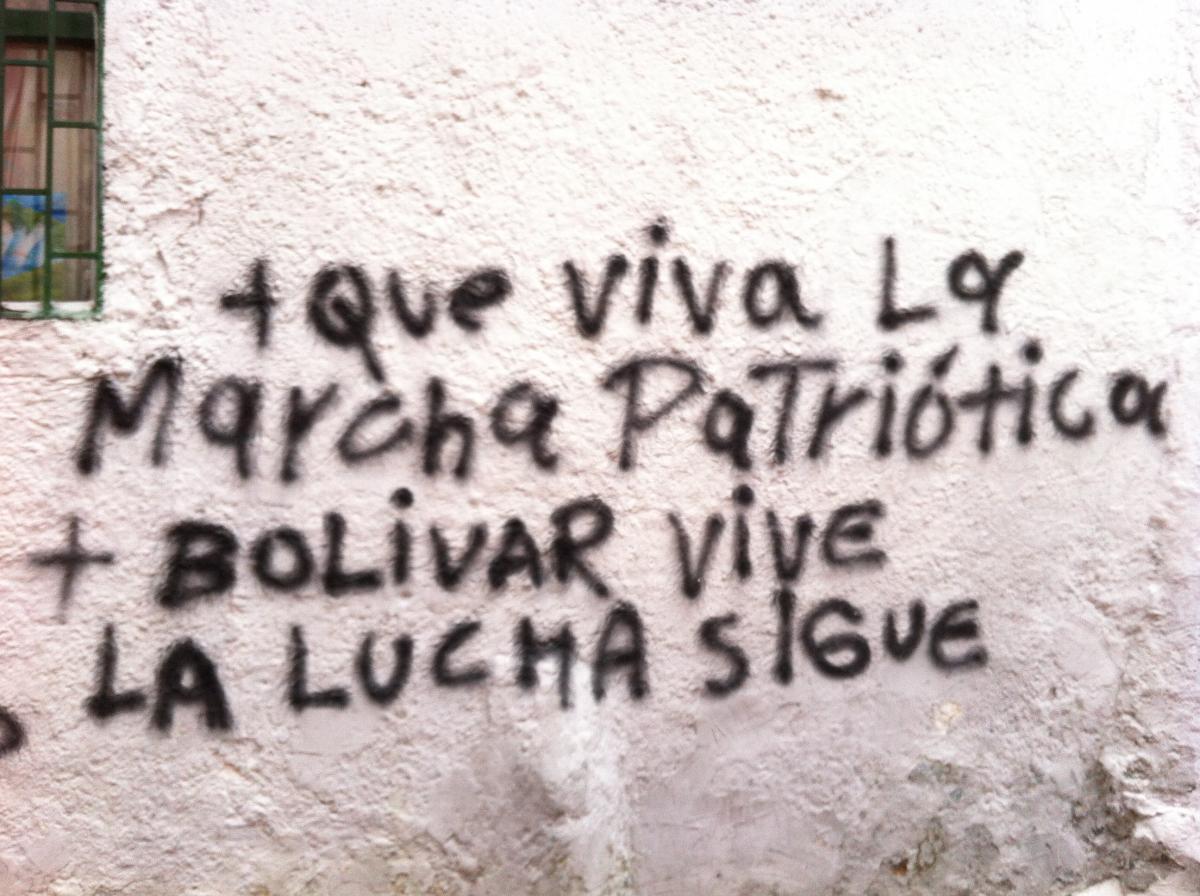 + Que viva La
Marcha PaTriótica
+ BOLiVAR ViVE
LA LUCHA SIGUE